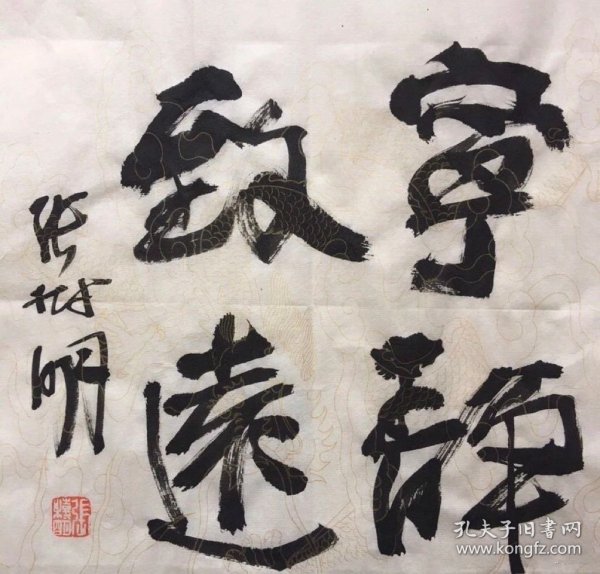 寧静
致遠
张树明
孔夫子旧书网
www.kongfz.com